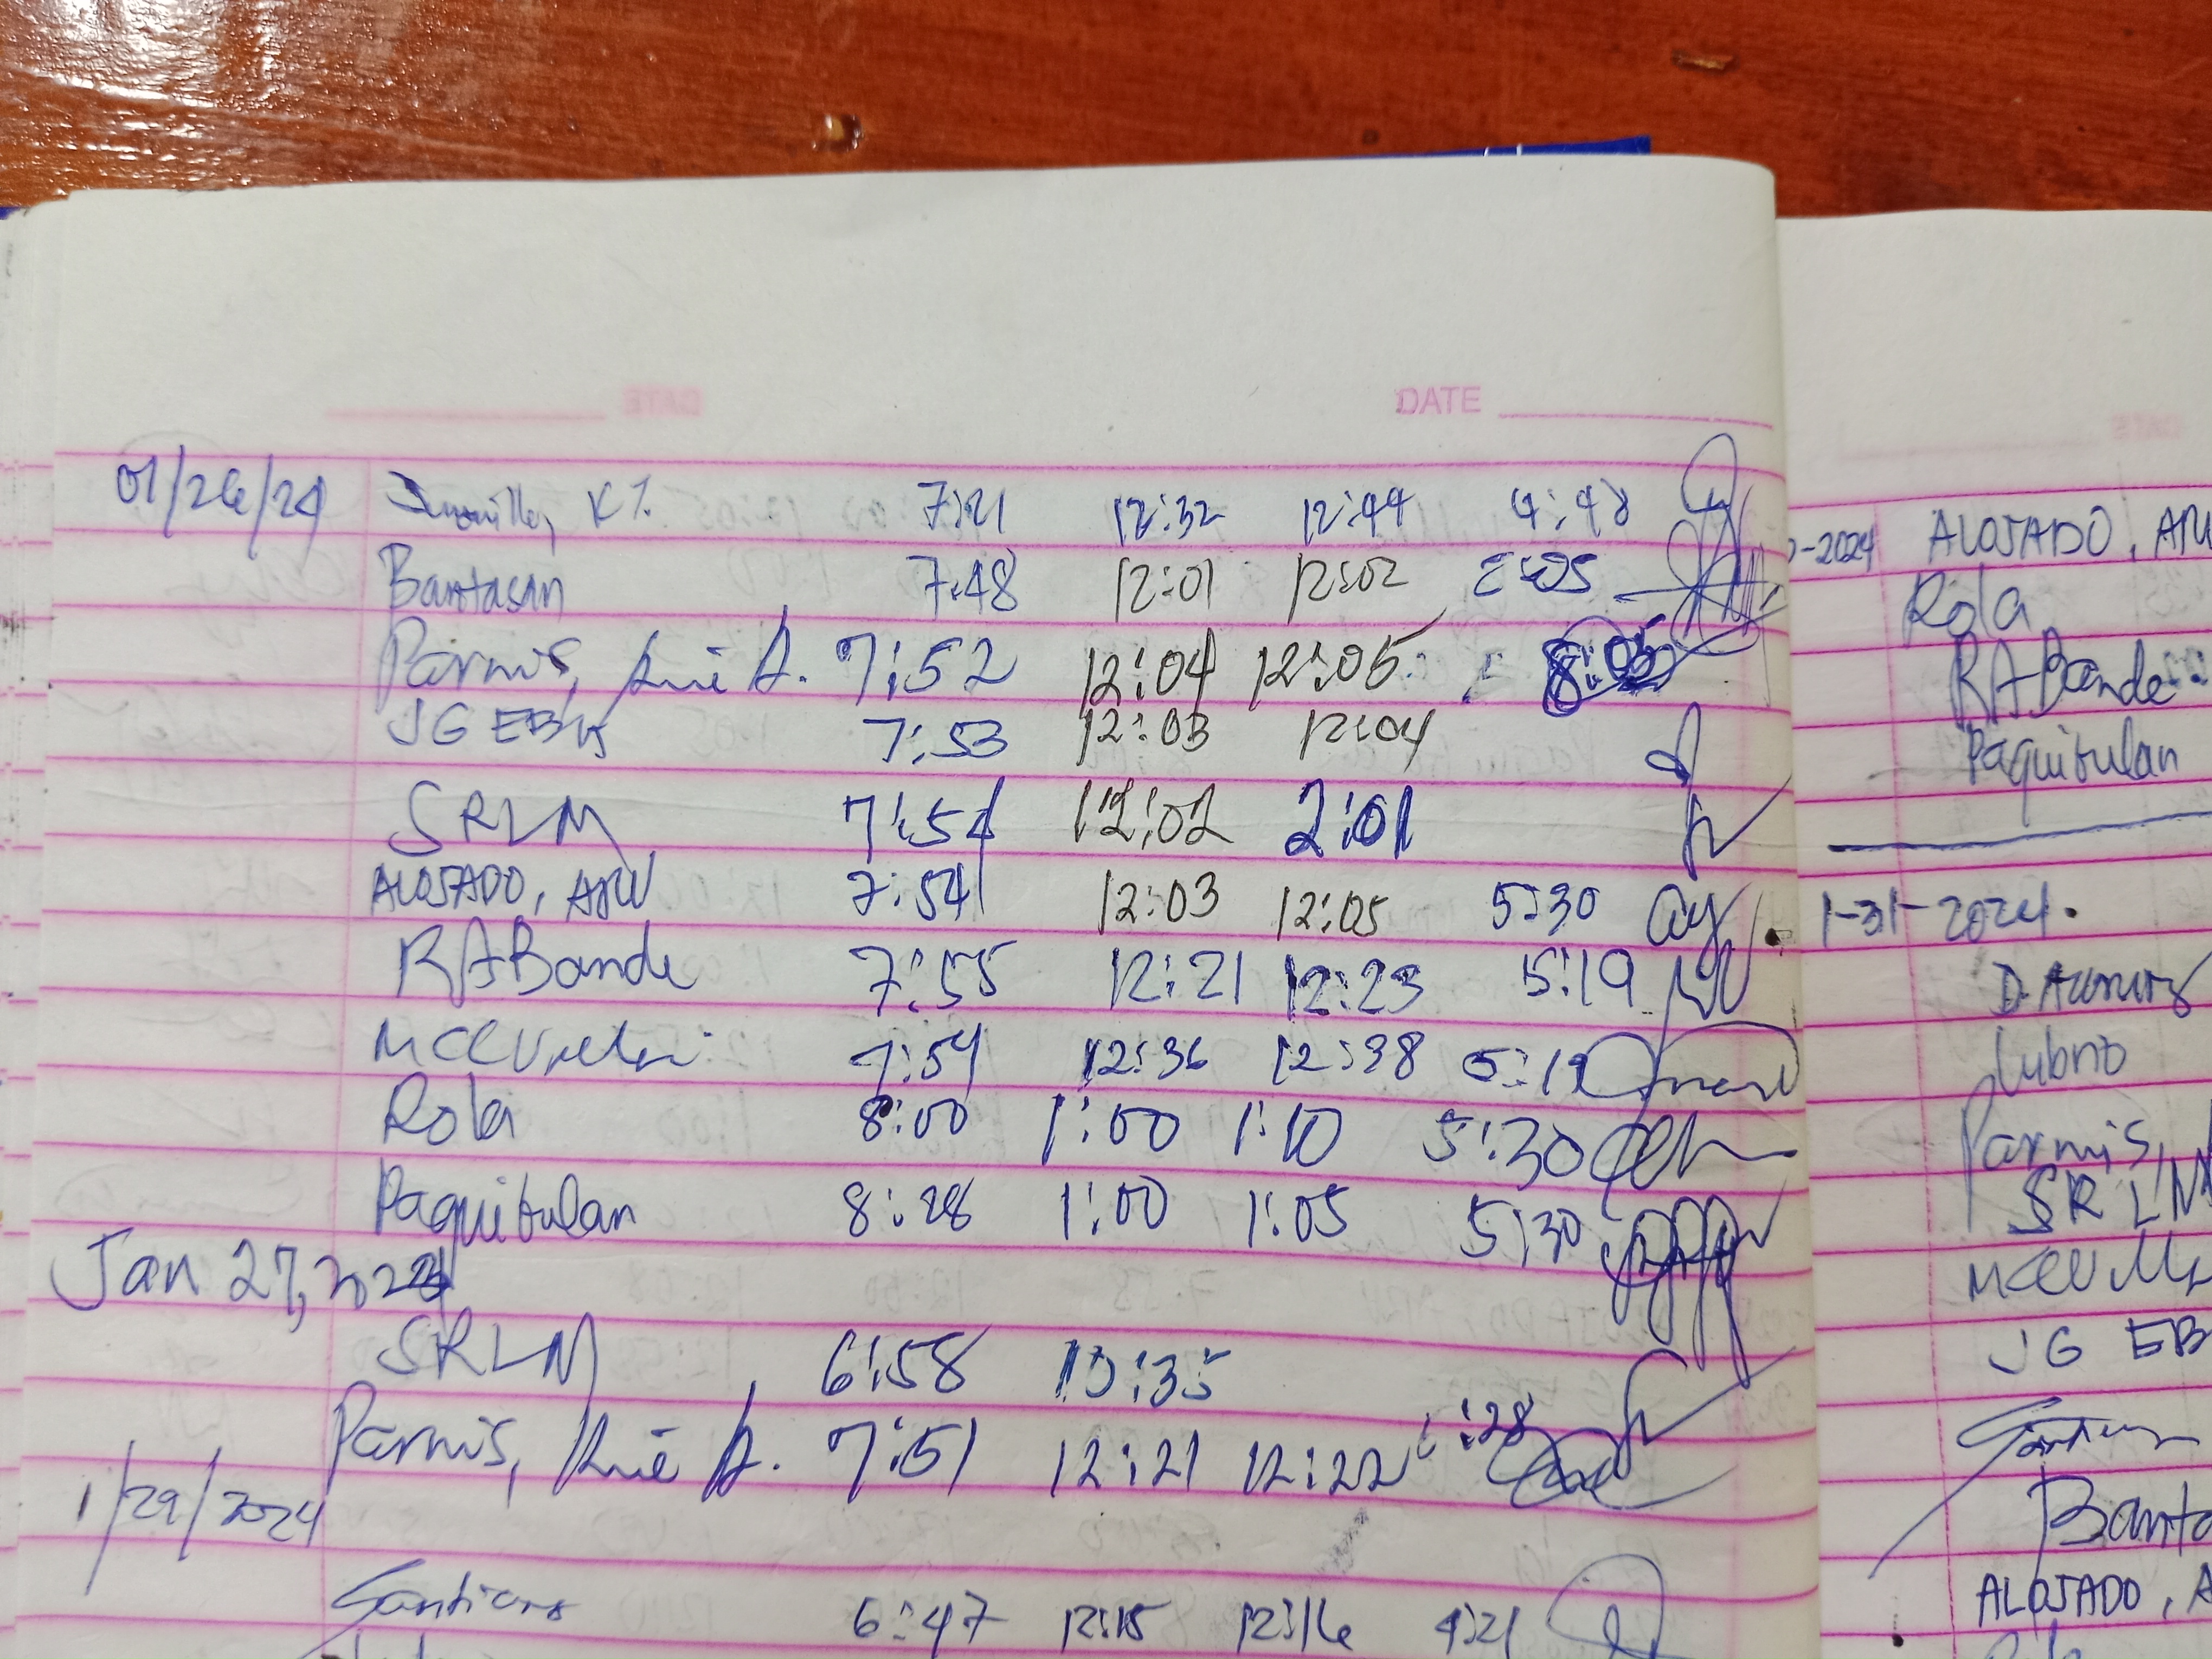 DATE
01/26/24 K 7:21 12:32 12:44 4:48
Bantasan 7:48 12:01 12:02 5:05
Parmis, A. 7:52 12:04 12:05 8:05
JG EB 7:53 12:03 12:04
SRLM 7:54 12:02 2:01
ALOJADO, ARV 7:54 12:03 12:05 5:30
RABande 7:55 12:21 12:23 5:19
7:59 12:36 12:38 5:19
Rola 8:00 1:00 1:10 5:30
Paquibulan 8:28 1:00 1:05 5:30
Jan 27, 2024
SRLM 6:58 10:35
Parmis, A. 7:51 12:21 12:22 :28
1/29/2024
6:47 12:15 12:16 4:21
-2024 ALOJADO,
Rola
RABande
Paquibulan
1-31-2024.
D.
Lubrio
Parmis,
SRLM
JG EB
Banta
ALOJADO, A